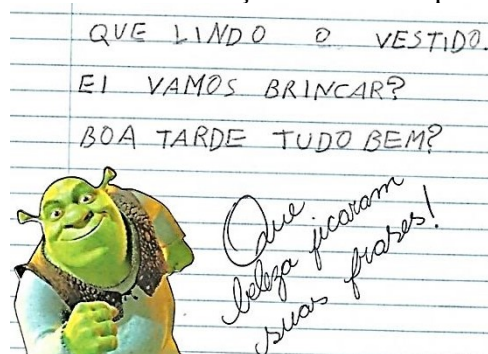 QUE LINDO O VESTIDO.
EI VAMOS BRINCAR?
BOA TARDE TUDO BEM?
Que
beleza ficaram
suas frases!